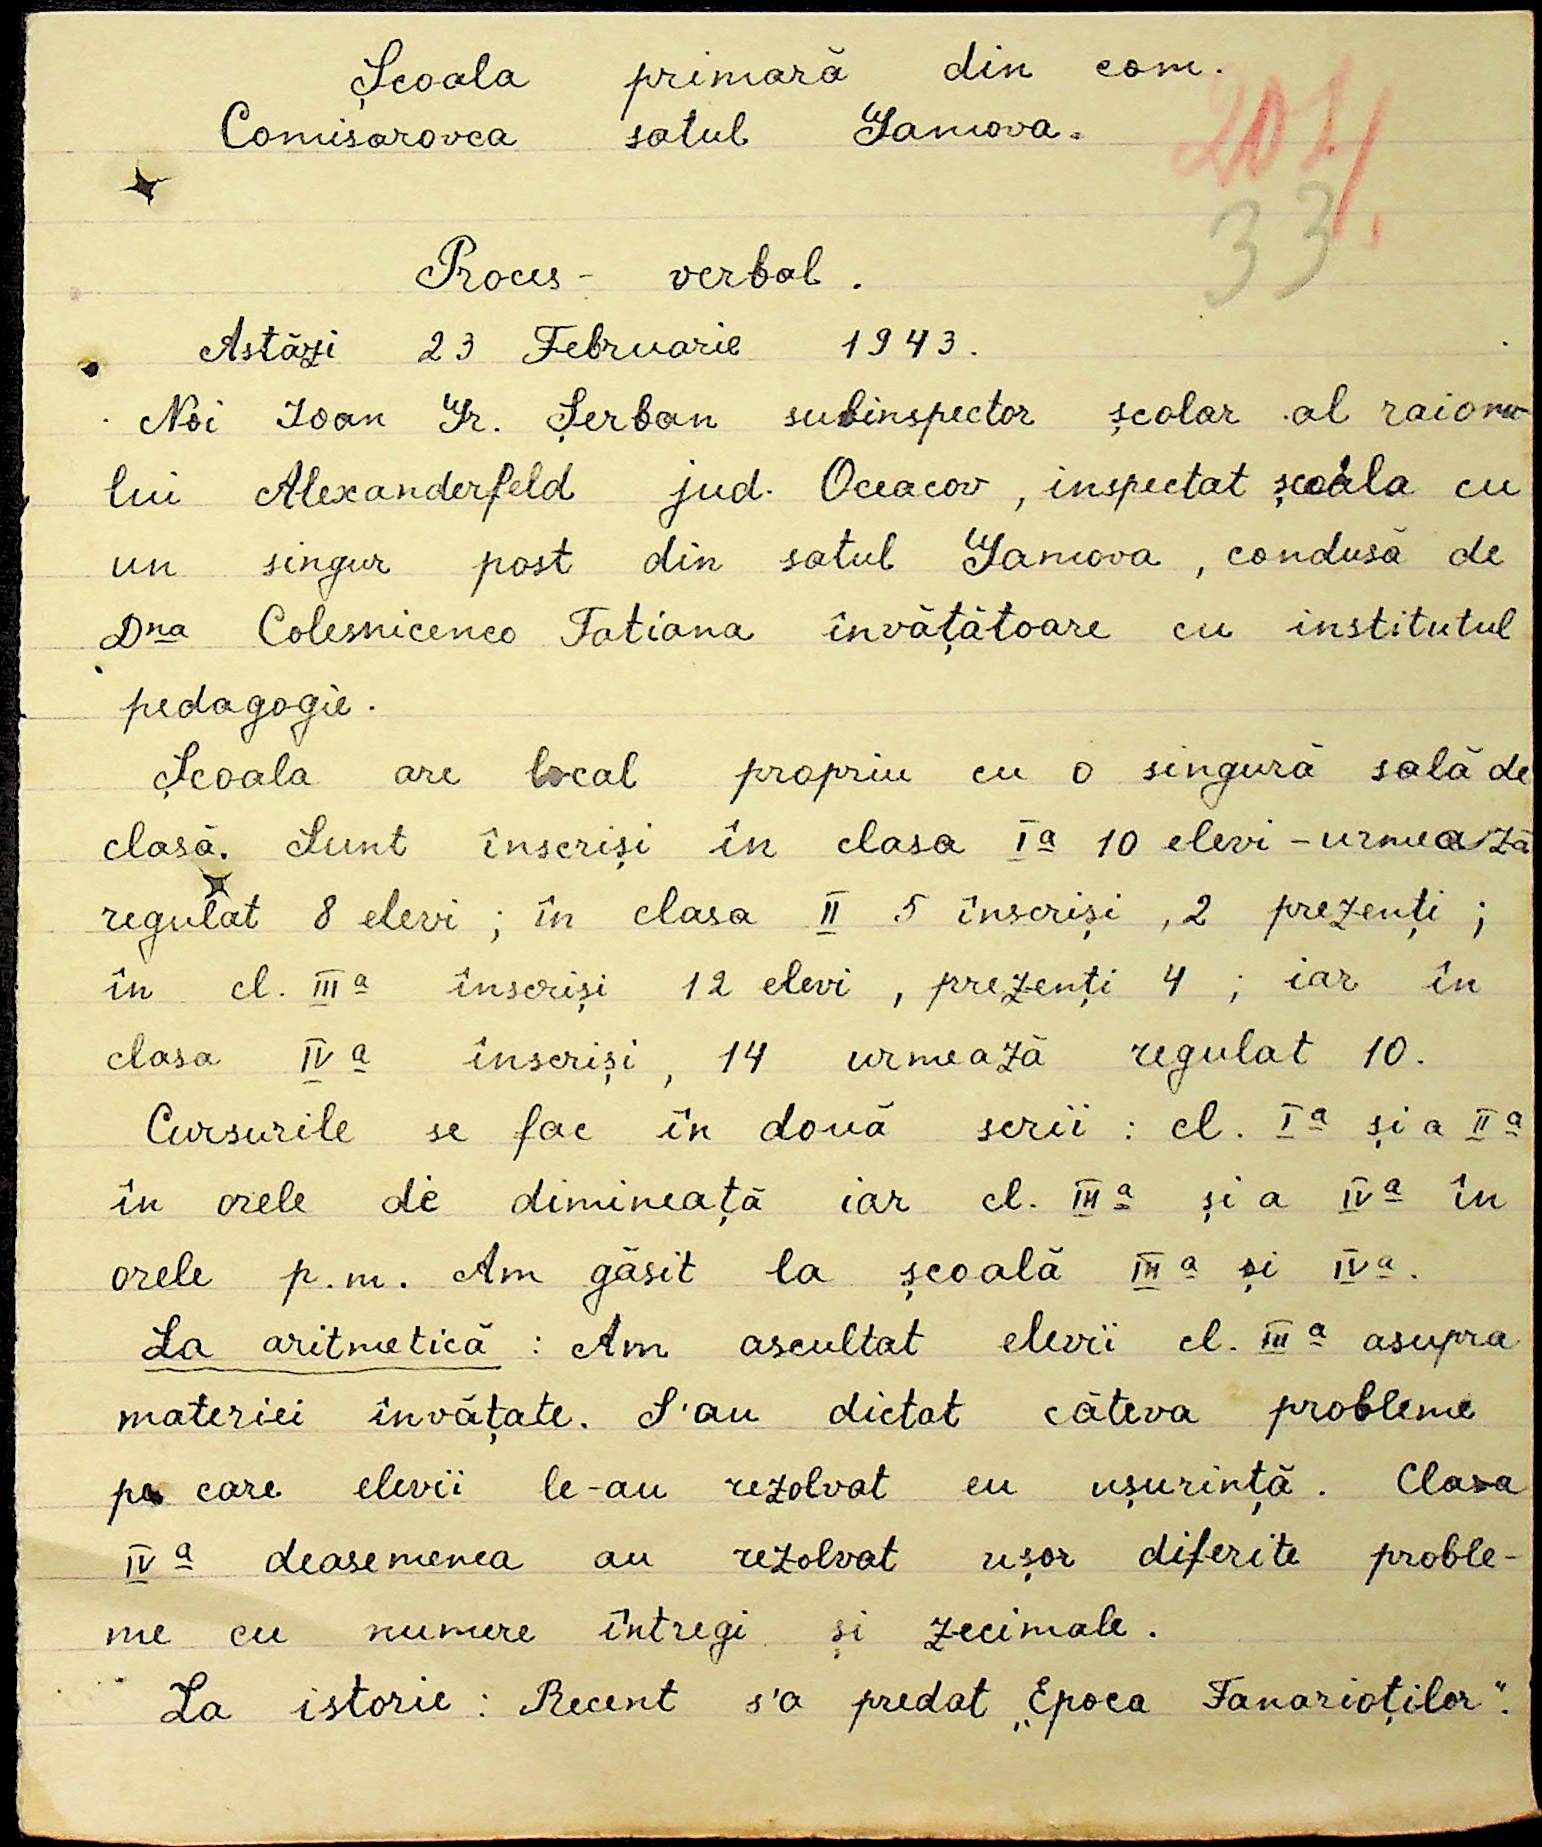 Școala primară din com.
Comisarovca satul Ianova.
201/.
33
Proces-verbal.
Astăzi 23 Februarie 1943.
Noi Ioan Gr. Șerban subinspector școlar al raionu-
lui Alexanderfeld jud. Oceacov, inspectat școala cu
un singur post din satul Ianova, condusă de
Dna Colesnicenco Tatiana învățătoare cu institutul
pedagogic.
Școala are local propriu cu o singură sală de
clasă. Sunt înscriși în clasa Iª 10 elevi – urmează
regulat 8 elevi; în clasa II 5 înscriși, 2 prezenți;
în cl. IIIª înscriși 12 elevi, prezenți 4; iar în
clasa IVª înscriși, 14 urmează regulat 10.
Cursurile se fac în două serii: cl. Iª și a IIª
în orele de dimineață iar cl. IIIª și a IVª în
orele p.m. Am găsit la școală IIIª și IVª.
La aritmetică: Am ascultat elevii cl. IIIª asupra
materiei învățate. S'au dictat câteva probleme
pe care elevii le-au rezolvat cu ușurință. Clasa
IVª deasemenea au rezolvat ușor diferite proble-
me cu numere întregi și zecimale.
La istorie: Recent s'a predat „Epoca Fanarioților".